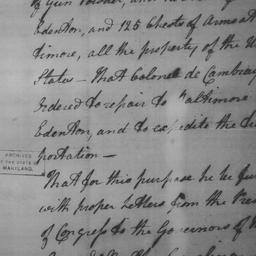 of Gun Powder, and
Edenton, and 125 Chests of Arms at
timore, all the property of the U
States – That Colonel de Cambray
ordered to repair to Baltimore
Edenton, and to expedite the
portation –
ARCHIVES
OF THE STATE OF
MARYLAND.
That for this purpose he be fur
with proper Letters from the Pres
of Congress to the Governors of